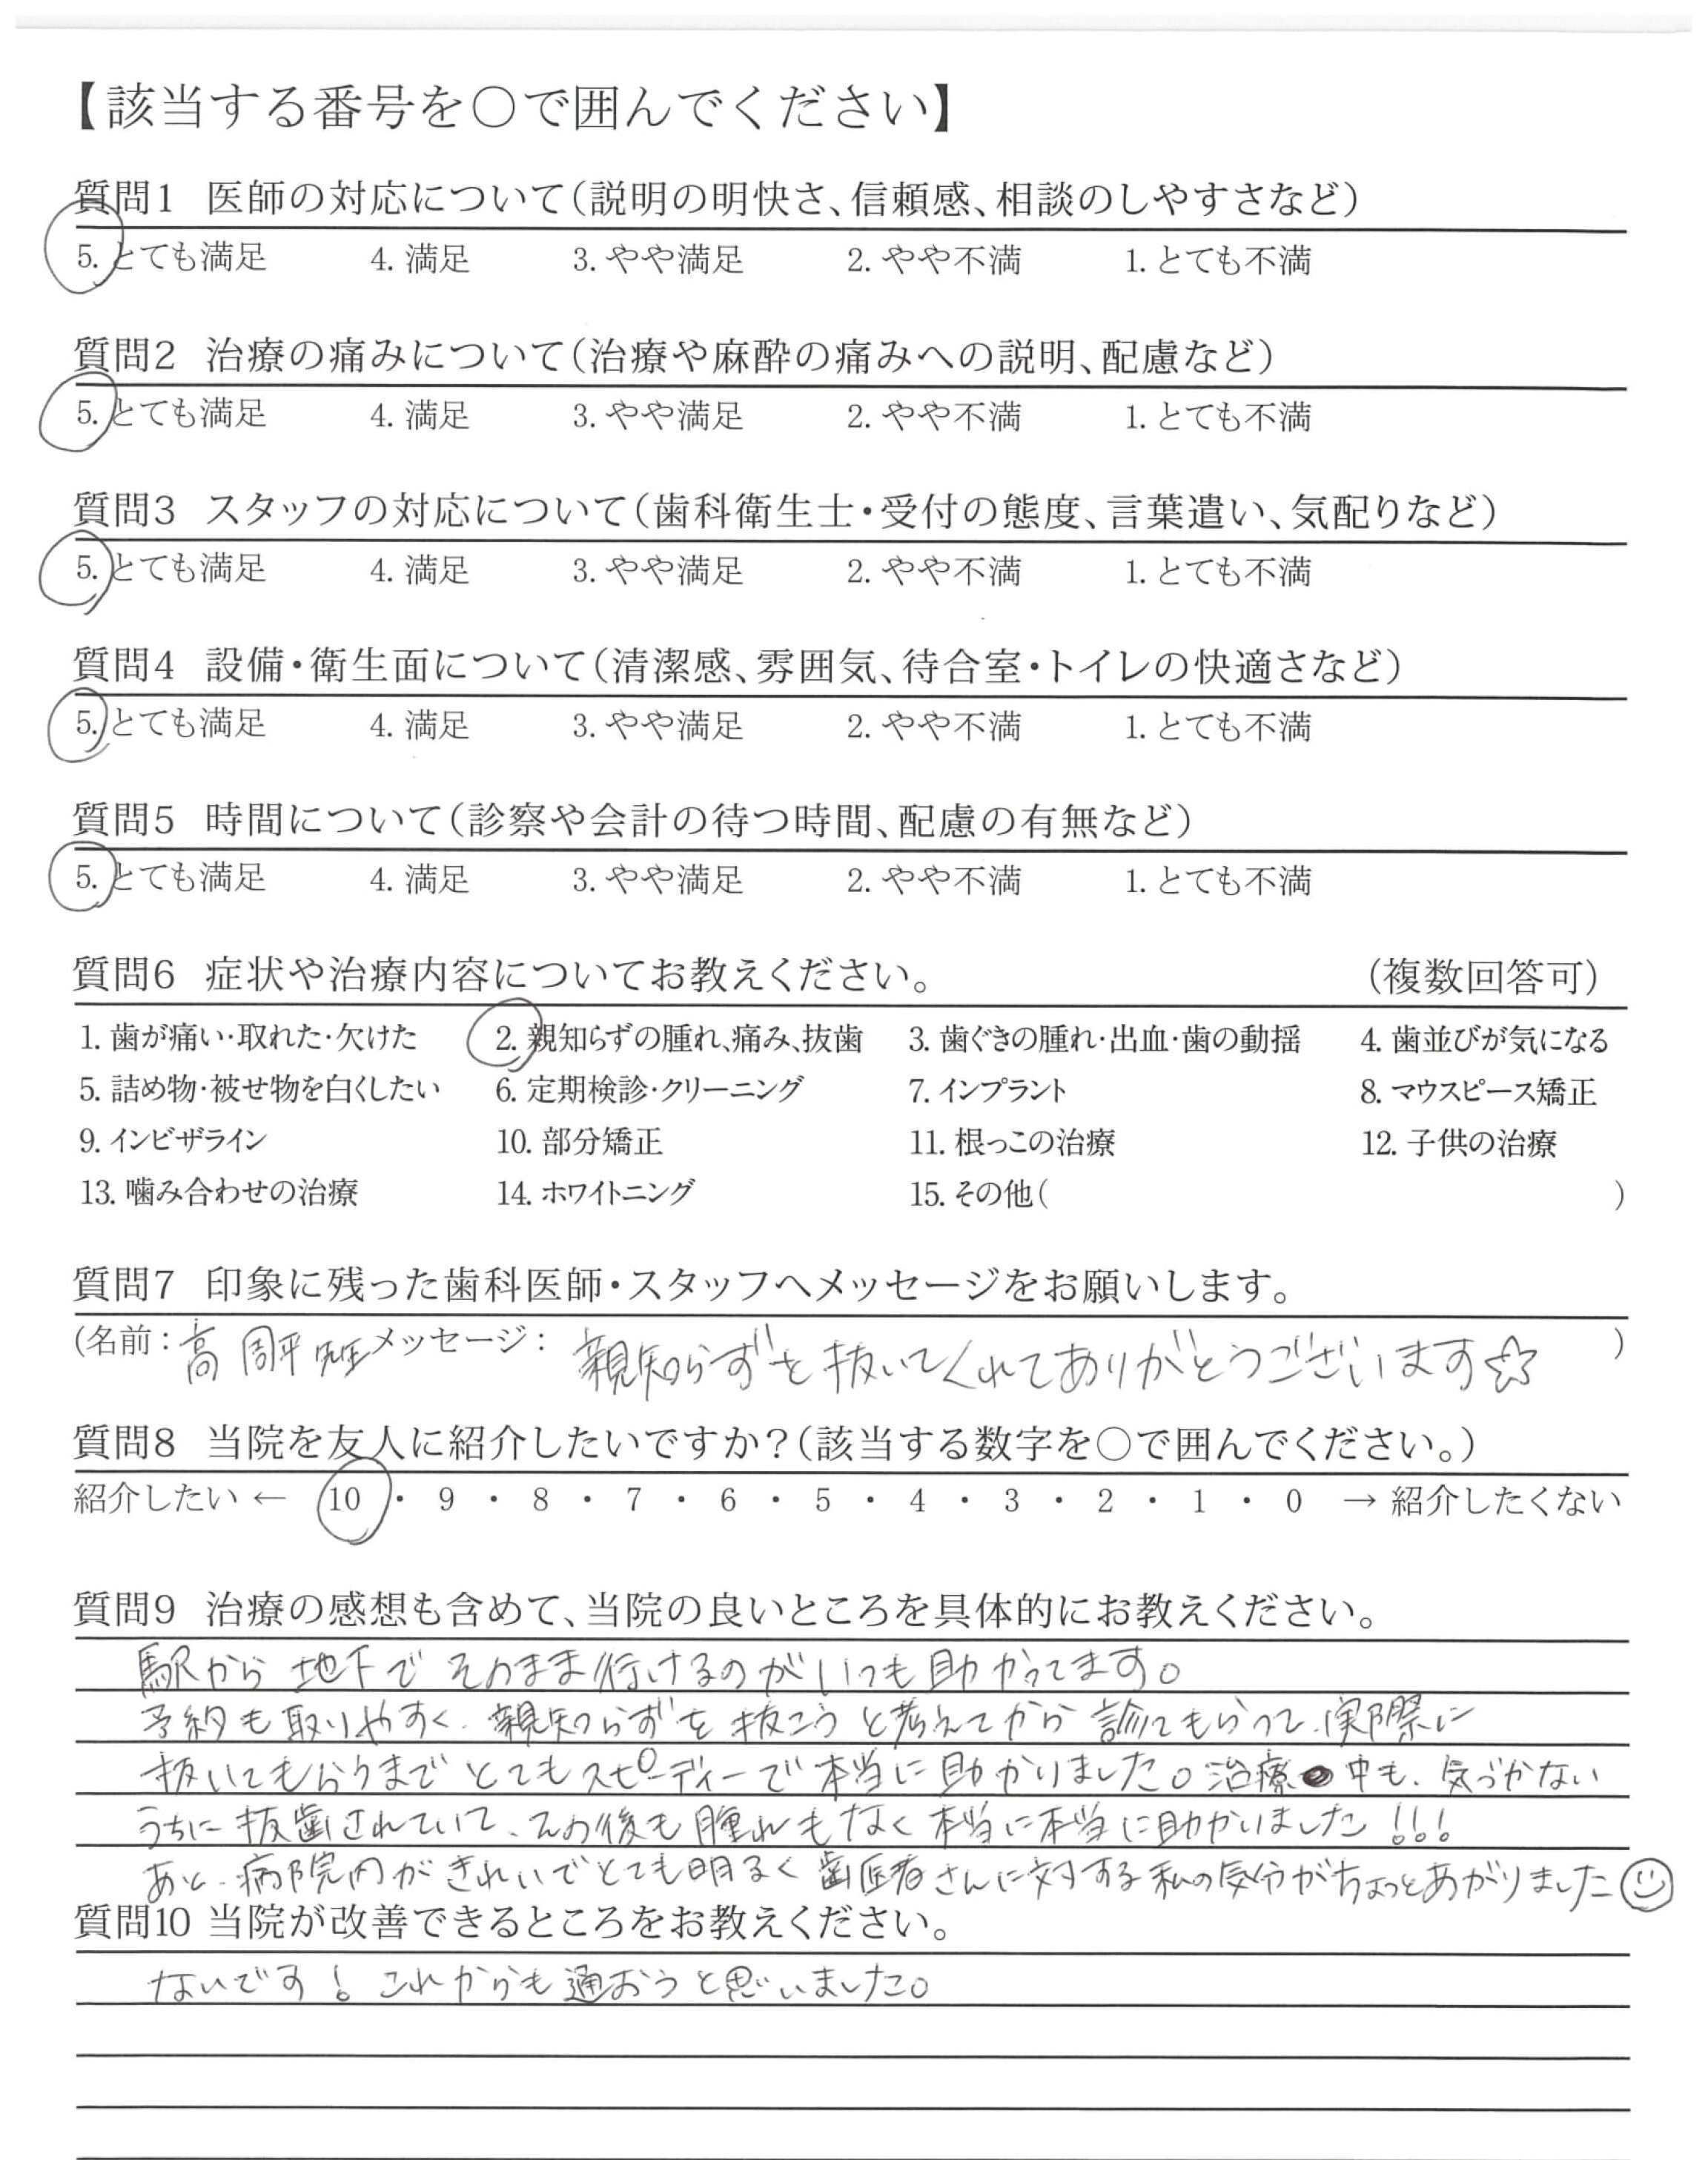 【該当する番号を○で囲んでください】
質問1 医師の対応について(説明の明快さ、信頼感、相談のしやすさなど)
5. とても満足 4. 満足 3. やや満足 2. やや不満 1. とても不満
質問2 治療の痛みについて(治療や麻酔の痛みへの説明、配慮など)
5. とても満足 4. 満足 3. やや満足 2. やや不満 1. とても不満
質問3 スタッフの対応について(歯科衛生士・受付の態度、言葉遣い、気配りなど)
5. とても満足 4. 満足 3. やや満足 2. やや不満 1. とても不満
質問4 設備・衛生面について(清潔感、雰囲気、待合室・トイレの快適さなど)
5. とても満足 4. 満足 3. やや満足 2. やや不満 1. とても不満
質問5 時間について(診察や会計の待つ時間、配慮の有無など)
5. とても満足 4. 満足 3. やや満足 2. やや不満 1. とても不満
質問6 症状や治療内容についてお教えください。 (複数回答可)
1. 歯が痛い・取れた・欠けた 2. 親知らずの腫れ、痛み、抜歯 3. 歯ぐきの腫れ・出血・歯の動揺 4. 歯並びが気になる
5. 詰め物・被せ物を白くしたい 6. 定期検診・クリーニング 7. インプラント 8. マウスピース矯正
9. インビザライン 10. 部分矯正 11. 根っこの治療 12. 子供の治療
13. 噛み合わせの治療 14. ホワイトニング 15. その他( )
質問7 印象に残った歯科医師・スタッフへメッセージをお願いします。
(名前:高 周平 先生 メッセージ: 親知らずを抜いてくれてありがとうございます☆ )
質問8 当院を友人に紹介したいですか?(該当する数字を○で囲んでください。)
紹介したい ← 10 ・ 9 ・ 8 ・ 7 ・ 6 ・ 5 ・ 4 ・ 3 ・ 2 ・ 1 ・ 0 → 紹介したくない
質問9 治療の感想も含めて、当院の良いところを具体的にお教えください。
駅から地下でそのまま行けるのがいつも助かってます。
予約も取りやすく、親知らずを抜こうと考えてから診てもらって、実際に
抜いてもらうまでとてもスピーディーで本当に助かりました。治療中も、気づかない
うちに抜歯されていて、その後も腫れもなく本当に本当に助かりました!!!
あと、病院内がきれいでとても明るく歯医者さんに対する私の気分がちょっとあがりました☺
質問10 当院が改善できるところをお教えください。
ないです! これからも通おうと思いました。